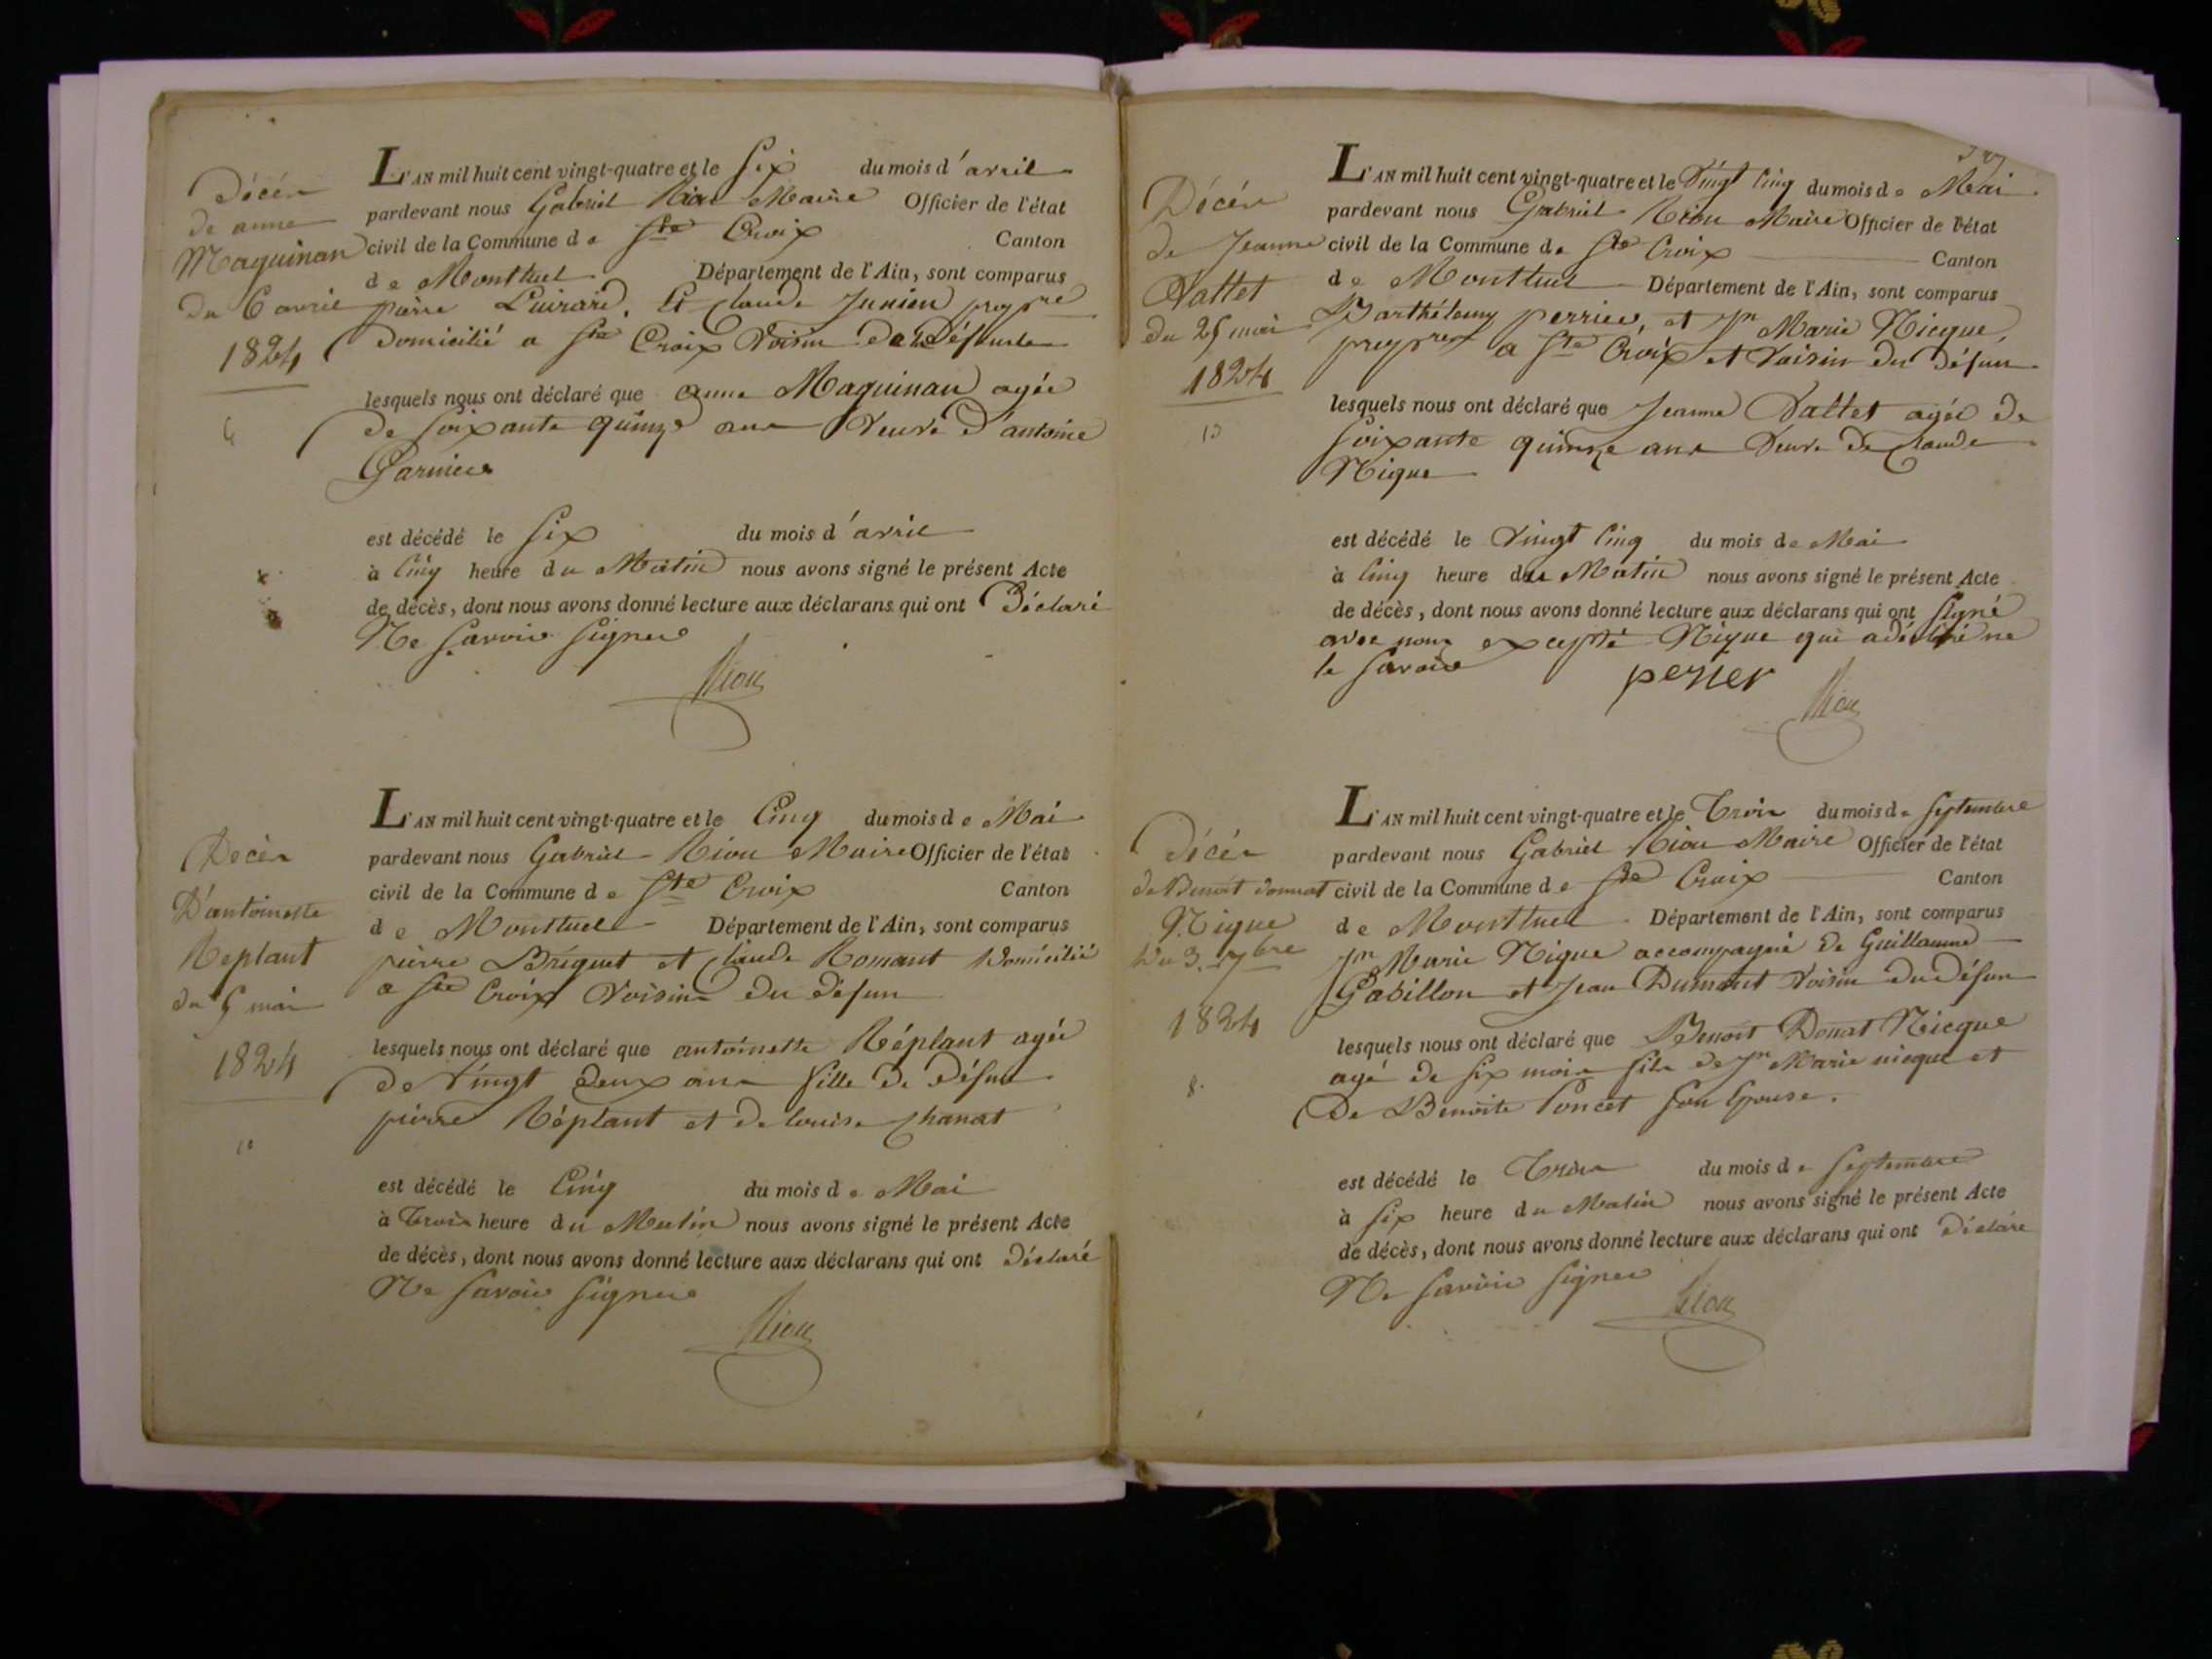 Décès
de anne
Maguinan
du 6 avril
1824
L'AN mil huit cent vingt-quatre et le Six du mois d'avril
pardevant nous Gabriel Riou Maire Officier de l'état
civil de la Commune de Ste Croix Canton
de Montluel Département de l'Ain, sont comparus
pierre et Claude Junien propre
Domicilié a Ste Croix Voisin de la Défunte
lesquels nous ont déclaré que anne Maguinan agée
de Soixante quinze ans Veuve d'antoine
Garnier
est décédé le Six du mois d'avril
à Cinq heure du Matin nous avons signé le présent Acte
de décès, dont nous avons donné lecture aux déclarans qui ont Déclaré
Ne Savoir Signer
Riou
Décès
D'antoinette
Replant
du 5 mai
1824
L'AN mil huit cent vingt-quatre et le Cinq du mois de Mai
pardevant nous Gabriel Riou Maire Officier de l'état
civil de la Commune de Ste Croix Canton
de Montluel Département de l'Ain, sont comparus
pierre Briquet et Claude Romant Domicilié
a Ste Croix Voisins du défun
lesquels nous ont déclaré que antoinette Réplant agée
de Vingt deux ans fille de Défun
pierre Réplant et de louise Chanat
est décédé le Cinq du mois de Mai
à Trois heure du Matin nous avons signé le présent Acte
de décès, dont nous avons donné lecture aux déclarans qui ont déclaré
Ne Savoir Signer
Riou
Décès
de Jeanne
Vallet
du 25 mai
1824
L'AN mil huit cent vingt-quatre et le Vingt Cinq du mois de Mai
pardevant nous Gabriel Riou Maire Officier de l'état
civil de la Commune de Ste Croix Canton
de Montluel Département de l'Ain, sont comparus
Barthélemy perrier, et Jn Marie Nicque,
propres a Ste Croix et Voisin du Défun
lesquels nous ont déclaré que Jeanne Vallet agée de
Soixante quinze ans Veuve de Claude
Nique
est décédé le Vingt Cinq du mois de Mai
à Cinq heure du Matin nous avons signé le présent Acte
de décès, dont nous avons donné lecture aux déclarans qui ont Signé
avec nous excepté Nique qui a déclaré ne
le Savoir
perier
Riou
Décès
de Benoit donnat
Nique
du 3. 7bre
1824
8.
L'AN mil huit cent vingt-quatre et le Trois du mois de Septembre
pardevant nous Gabriel Riou Maire Officier de l'état
civil de la Commune de Ste Croix Canton
de Montluel Département de l'Ain, sont comparus
Jn Marie Nique accompagné de Guillaume
Gabillon et Jean Dumont Voisin du défun
lesquels nous ont déclaré que Benoit Donat Nicque
agé de Six mois fils de Jn Marie nicque et
De Benoite Poncet Son Epouse.
est décédé le Trois du mois de Septembre
à Six heure du Matin nous avons signé le présent Acte
de décès, dont nous avons donné lecture aux déclarans qui ont déclaré
Ne Savoir Signer
Riou